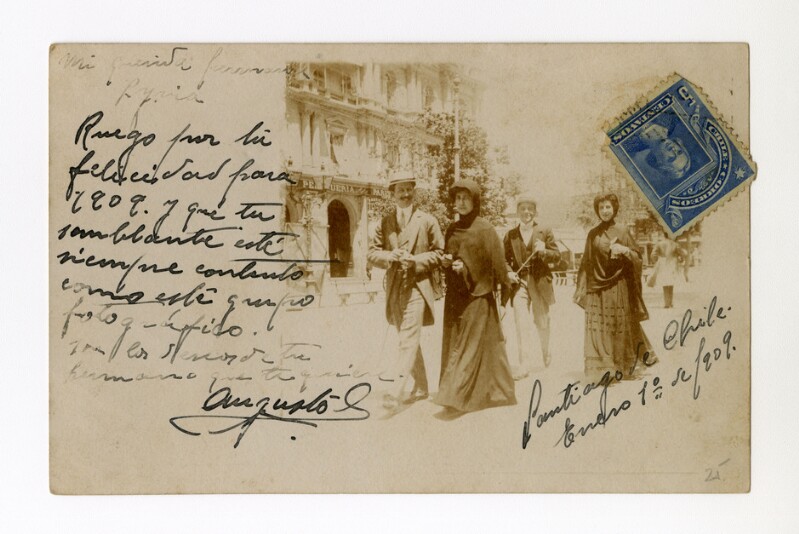 Mi querida hermana
Ruego por tu
felicidad para
1909. y que tu
semblante esté
siempre contento
como esté grupo
fotográfico.
son los deseos de tu
hermano que te quiere.
Augusto
Santiago de Chile.
Enero 1º de 1909.
CHILE CORREOS
CENTAVOS
5
25